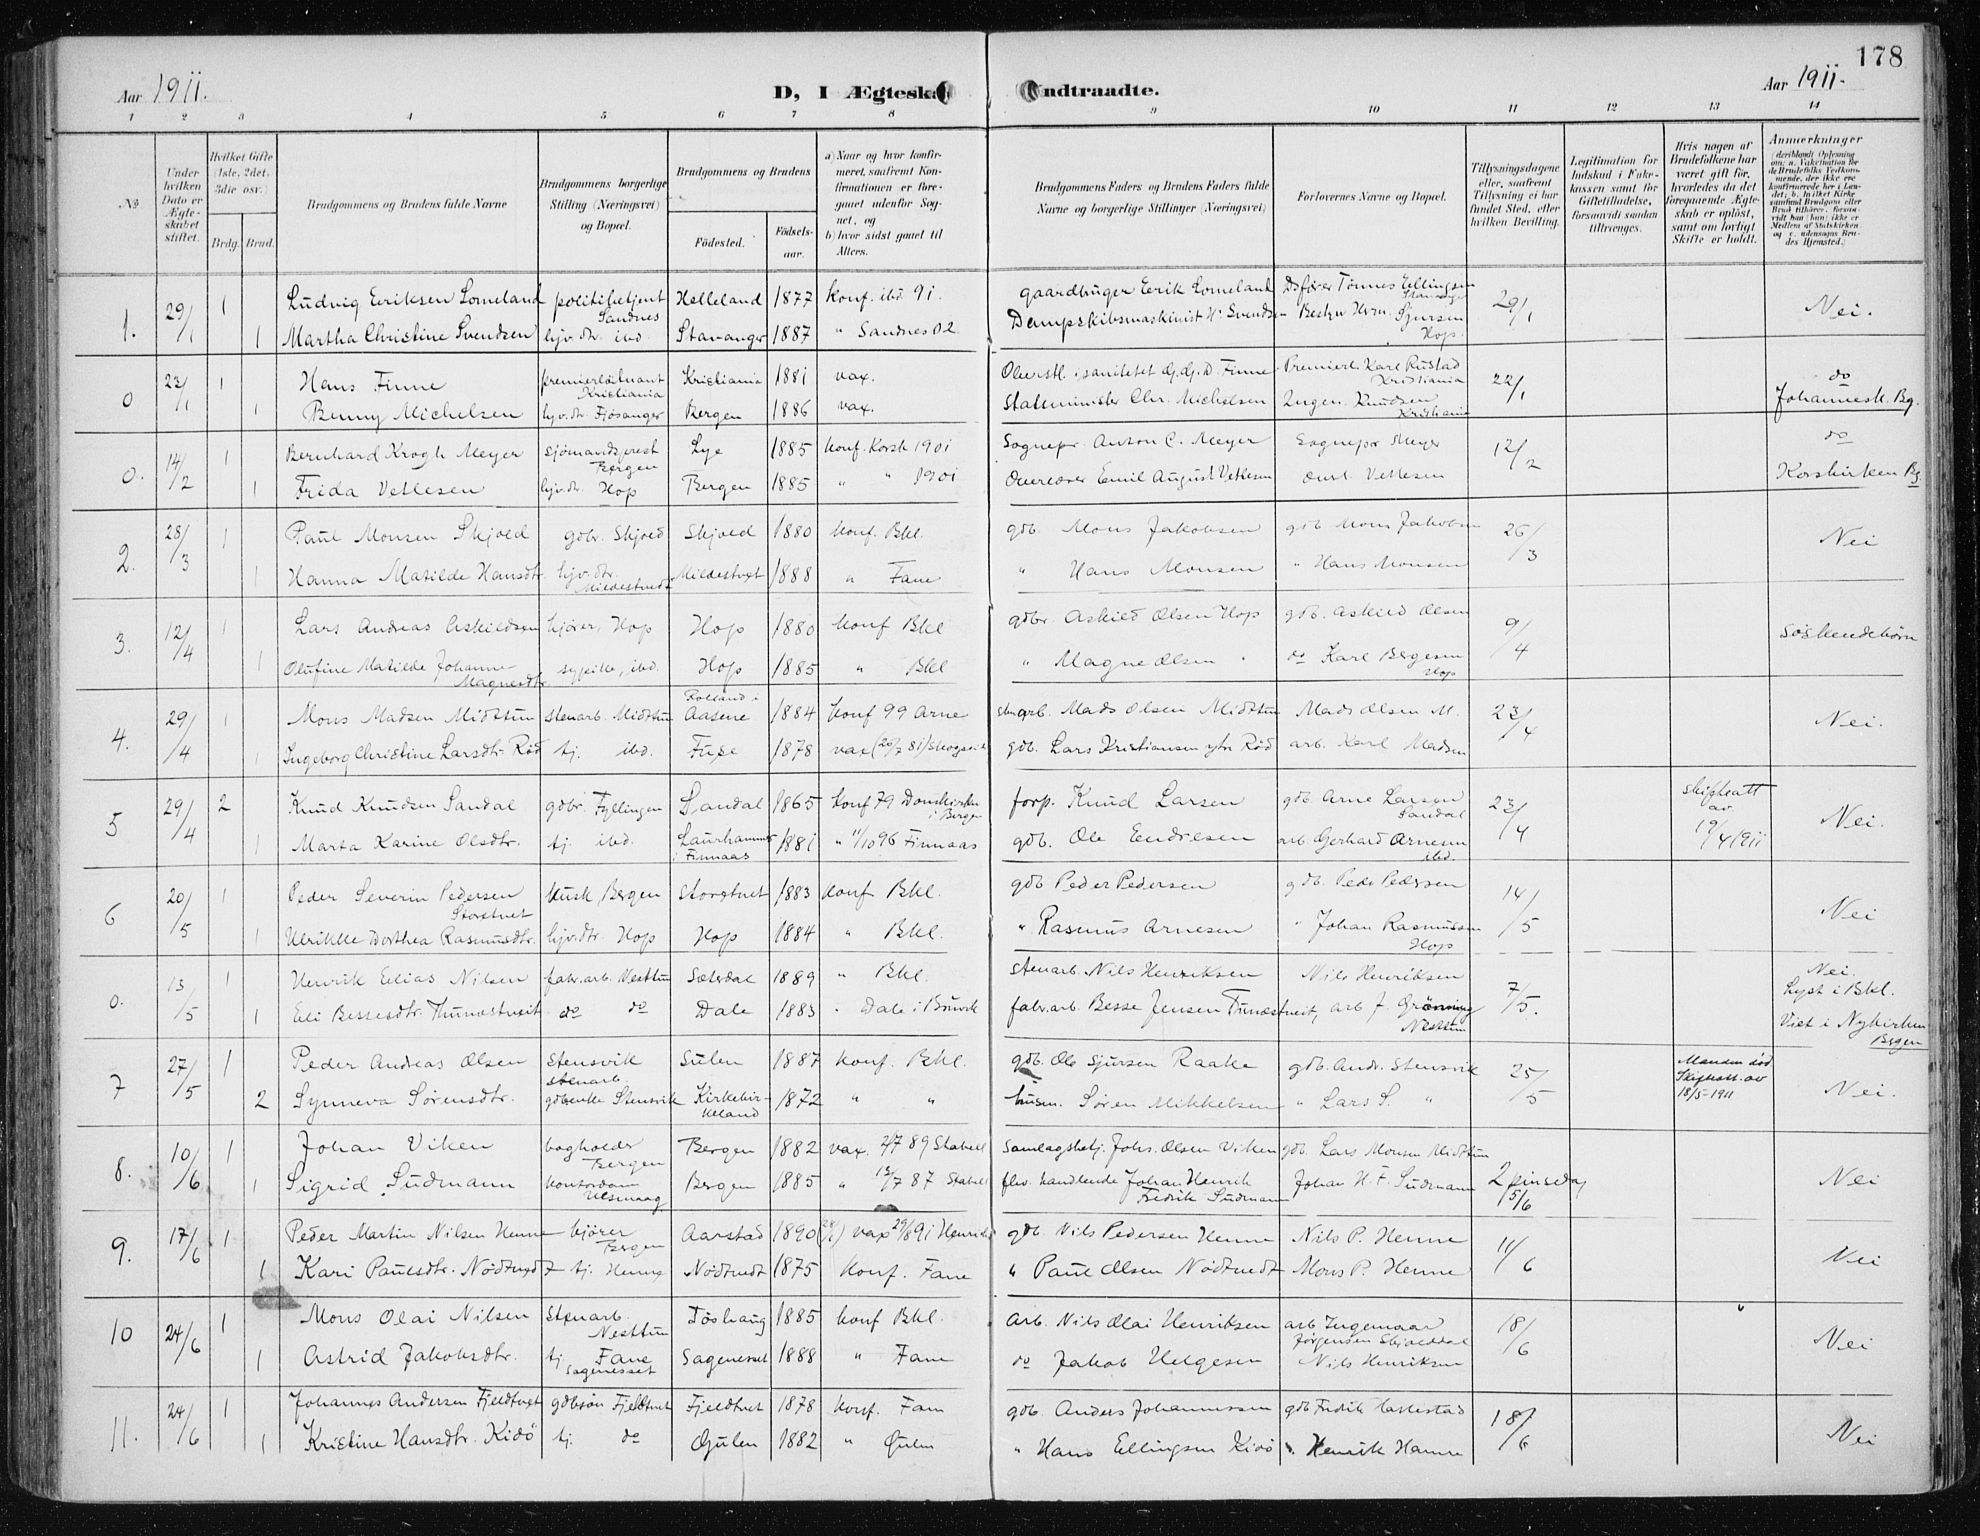 178
Aar 1911.
D, I Ægteskab Indtraadte.
Aar 1911.
1 2 3 4 5 6 7 8 9 10 11 12 13 14
No.
Under hvilken Dato er Ægteskabet stiftet.
Hvilket Gifte (1ste, 2det, 3die osv.)
Brdg. Brud.
Brudgommens og Brudens fulde Navne
Brudgommens borgerlige Stilling (Næringsvei) og Bopæl.
Brudgommens og Brudens
Fødested. Fødselsaar.
a) Naar og hvor konfirmeret, saafremt Konfirmationen er foregaaet udenfor Sognet, og
b) hvor sidst gaaet til Alters.
Brudgommens Faders og Brudens Faders fulde Navne og borgerlige Stillinger (Næringsvei)
Forlovernes Navne og Bopæl.
Tillysningsdagene eller, saafremt Tillysning ei har fundet Sted, efter hvilken Bevilling.
Legitimation for Indskud i Enkekassen samt for Giftetilladelse, forsaavidt saadan tiltrænges.
Hvis nogen af Brudefolkene har været gift før, hvorledes da det foregaaende Ægteskab er opløst, samt om lovligt Skifte er holdt.
Anmerkninger
1. 29/1 1 Ludvig Eeriksen Lomeland politibetjent Sandnes Helleland 1877 konf. ibd. 91. gaardbruger Eerik Lomeland Tönnes Ellingsen Stavanger 29/1 Nei.
1 Martha Christine Svendsen hjv. dtr. ibd. Stavanger 1887 " Sandnes 02. Dampskibsmaskinist H. Svendsen Sjursen Hop.
0 23/1 1 Hans Finne premierløitnant Kristiania Kristiania 1881 vax. Oberstl. i sanitetet G. G. D. Finne Premierl. Karl Rustad Kristiania 22/1 do
1 Benny Michelsen hjv. dtr. Fjøsanger Bergen 1886 vax. Statsminister Chr. Michelsen Ingen. Knudsen Kristiania Johannesk. Bg.
0. 14/2 1 Bernhard Krogh Meyer sjømandsprest Bergen Lye 1885 konf. Korsk 1901 Sognepr. Anton C. Meyer Sognepr Meyer 12/2 do
1 Frida Vetlesen hjv. dtr. Hop Bergen 1885 " " 1901 Overlærer Emil August Vetlesen Vetlesen Korskirken Bg.
2. 28/3 1 Paul Monsen Skjold gdbr. Skjold Skjold 1880 konf. Bkl. gdb. Mons Jakobsen gdb Mons Jakobsen 26/3 Nei
1 Hanna Matilde Hansdtr. hjv. dtr. Mildestvedt Mildestvet 1888 " Fane " Hans Monsen " Hans Monsen
3. 12/4 1 Lars Andreas Askildsen kjører, Hop Hop 1880 konf Bkl gdbr. Askild Olsen Hop gdb. Askild Olsen 9/4 Søskendebørn
1 Olufine Matilde Johanne Magnesdtr. sypike, ibd. Hop 1885 " Bkl " Magne Olsen " do Karl Bergesen Hop
4. 29/4 1 Mons Madsen Midttun stenarb. Midttun Rolland i Aasene 1884 konf 99 Arne stenarb. Mads Olsen Midttun Mads Olsen M. 23/4 Nei.
1 Ingeborg Christine Larsdtr. Rød tj. ibd. Fuse 1878 vax (20/7 81) Skogseid gdb. Lars Kristiansen ytre Rød arb. Karl Madsen
5 29/4 2 Knud Knudsen Sandal gdbr. Fyllingen Sandal 1865 konf 79 Domkirken i Bergen forp. Knud Larsen gdb. Arne Larsen Sandal 23/4 skifteatt av 19/4 1911 Nei.
1 Marta Karine Olsdtr. tj. ibd. Laurhammer i Finnaas 1881 " 11/10 96 Finnaas gdb. Ole Endresen arb. Gerhard Arnesen ibd.
6 20/5 1 Peder Severin Pedersen Storetvet Musk. Bergen Storetvet 1883 konf Bkl. gdb Peder Pedersen gdb. Peder Pedersen 14/5 Nei
1 Ulrikke Dorthea Rasmusdtr. hjv. dtr. Hop Hop 1884 " Bkl. " Rasmus Arnesen " Johan Rasmussen Hop
0. 13/5 1 Henrik Elias Nilsen fabr. arb. Nesttun Sælsdal 1889 " Bkl. stenarb. Nils Henriksen Nils Henriksen 7/5. Nei. Lyst i Bkl.
1 Eli Bessesdtr. Thunestveit do do Dale 1883 " Dale i Bruvik fabr. arb. Besse Jensen Tunestveit, arb J. Grønning Nesttun Viet i Nykirken Bergen
7 27/5 1 Peder Andreas Olsen Stensvik stenarb. Sulen 1887 konf. Bkl. gdb. Ole Sjursen Raake gdb. Andr. Stensvik 25/5 Manden død Skifteatt. av 18/5-1911 Nei.
2 Synneva Sørensdtr. gdbenke Stensvik Kirkebirkeland 1872 " " husm. Søren Mikkelsen " Lars S. "
8. 10/6 1 Johan Viken bogholder Bergen Bergen 1882 vax. 2/7 89 Stabell Samlagsbetj. Johs. Olsen Viken gdb. Lars Monsen Midttun 2 pinsedag 5/6 Nei
1 Sigrid Sudmann kontordam Bergen 1885 " 13/7 87 Stabell handlende Johan Henrik Fredrik Sudmann Johan H. F. Sudmann
9. 17/6 1 Peder Martin Nilsen Henne kjører Bergen Aarstad 1890 vax 29/8 91 Henriks gdb. Nils Pedersen Henne Nils P. Henne 11/6 Nei
1 Kari Paulsdtr. Nødtvedt tj. Henne Nødtvedt 1875 konf. Fane " Paul Olsen Nødtvedt Mons P. Henne
10 24/6 1 Mons Olai Nilsen stenarb. Nesttun Tøshaug 1885 konf Bkl. Arb. Nils Olai Henriksen arb Ingemaar Jørgensen Skjolddal 18/6 Nei
1 Astrid Jakobsdtr. tj. Fane Sagenesset Sagenesset 1888 " Fane do Jakob Helgesen Nils Henriksen
11. 24/6 1 Johannes Andersen Fjeldtvet gdbsøn Fjeldtvet Fjeldtvet 1878 konf. Fane gdb. Anders Johannessen gdb Fredrik Hallestad 18/6 Nei
1 Kristine Hansdtr. Kidø tj. do Gulen 1882 " Gulen " Hans Ellingsen Kidø " Henrik Hanne